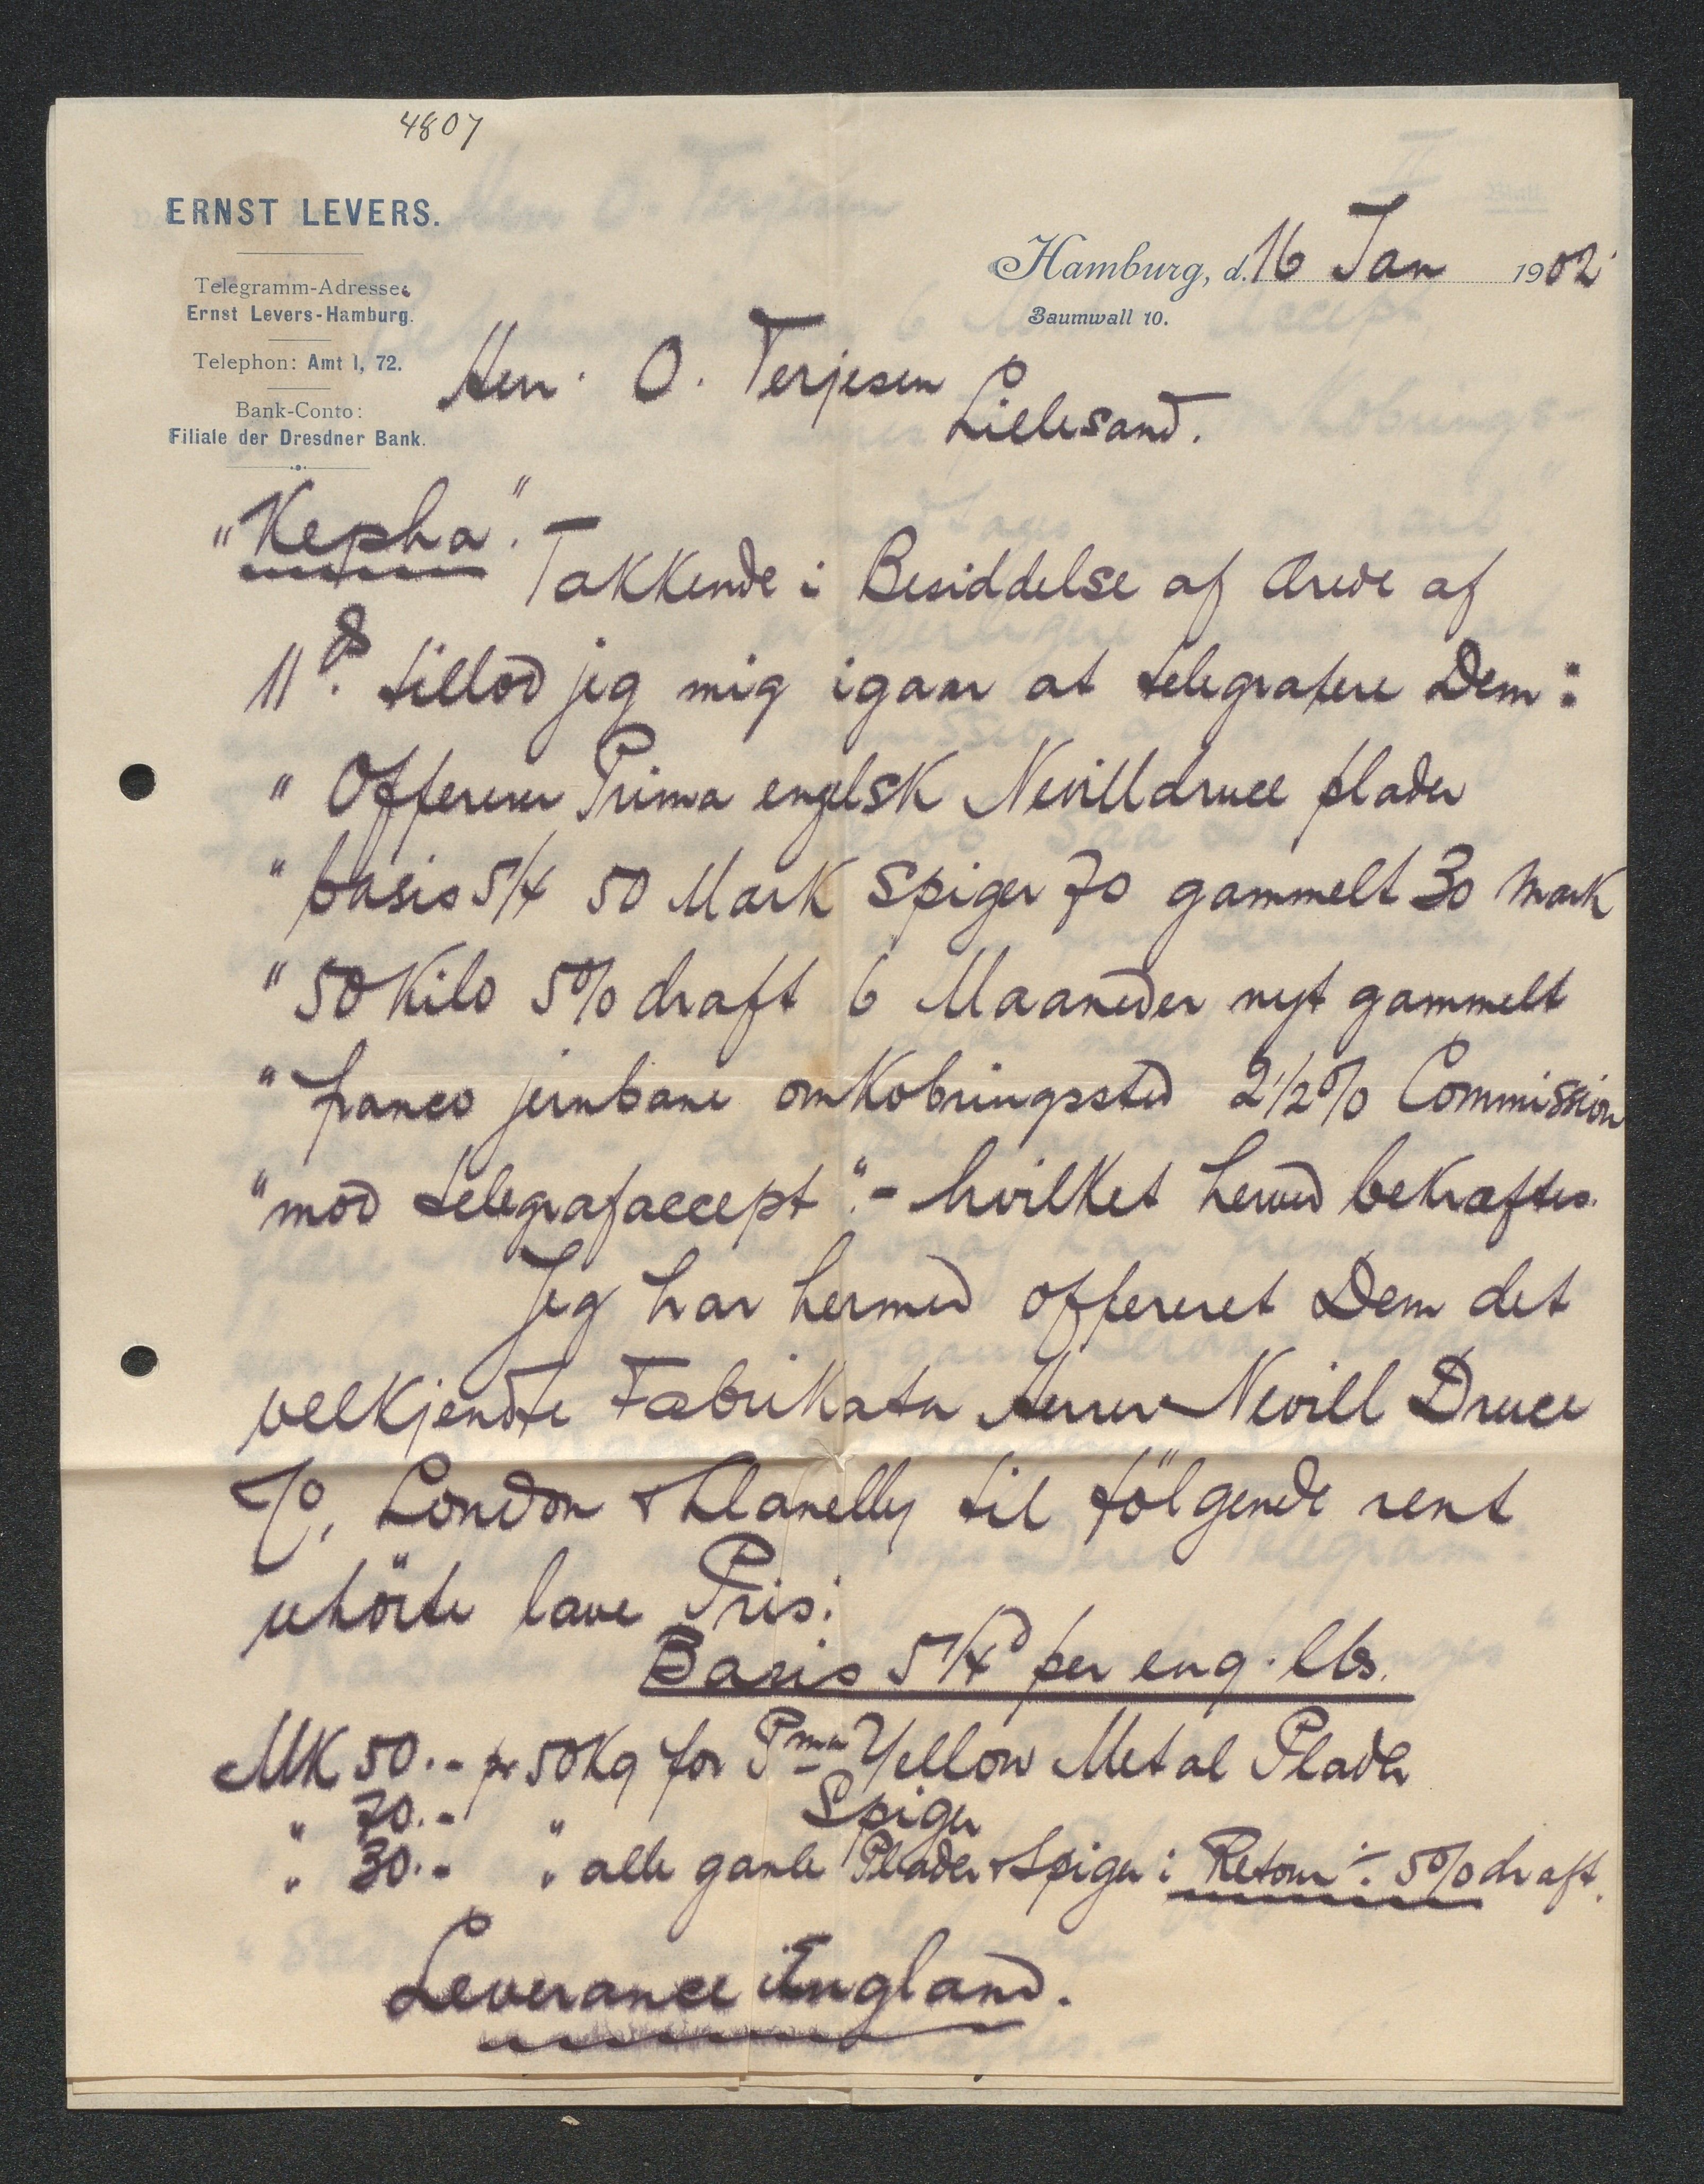 4807
ERNST LEVERS.
Telegramm-Adresse:
Ernst Levers-Hamburg.
Telephon: Amt I, 72.
Bank-Conto:
Filiale der Dresdner Bank.
Hamburg, d. 16 Jan 1902
Baumwall 10.
Herr. O. Terjesen
Lillesand.
"Kepha".
Takkende i Besiddelse af ærede af
11 ds. tillod jeg mig igaar at telegrafere Dem:
" Offerer Prima engelsk Nevilldruce plader
" basis 5 1/4 50 Mark Spiger 70 gammelt 30 Mark
" 50 Kilo 5% draft 6 Maaneder nyt gammelt
" franco jernbane omkobringssted 2 1/2 % Commission
"mod telegrafaccept".- hvilket herved bekræftes.
Jeg har hermed offereret Dem det
velkjendte Fabrikata Herrer Nevill Druce
Co, London & Llanelly til følgende rent
uhörte lave Pris:
Basis 5 1/4 d per eng. lbs.
MK 50.- pr 50 Kg for Pma Yellow Metal Plader
" 70.- " Spiger
" 30.- " alle gamle Plader & Spiger i Retour ÷ 5% draft.
Leverance i England.